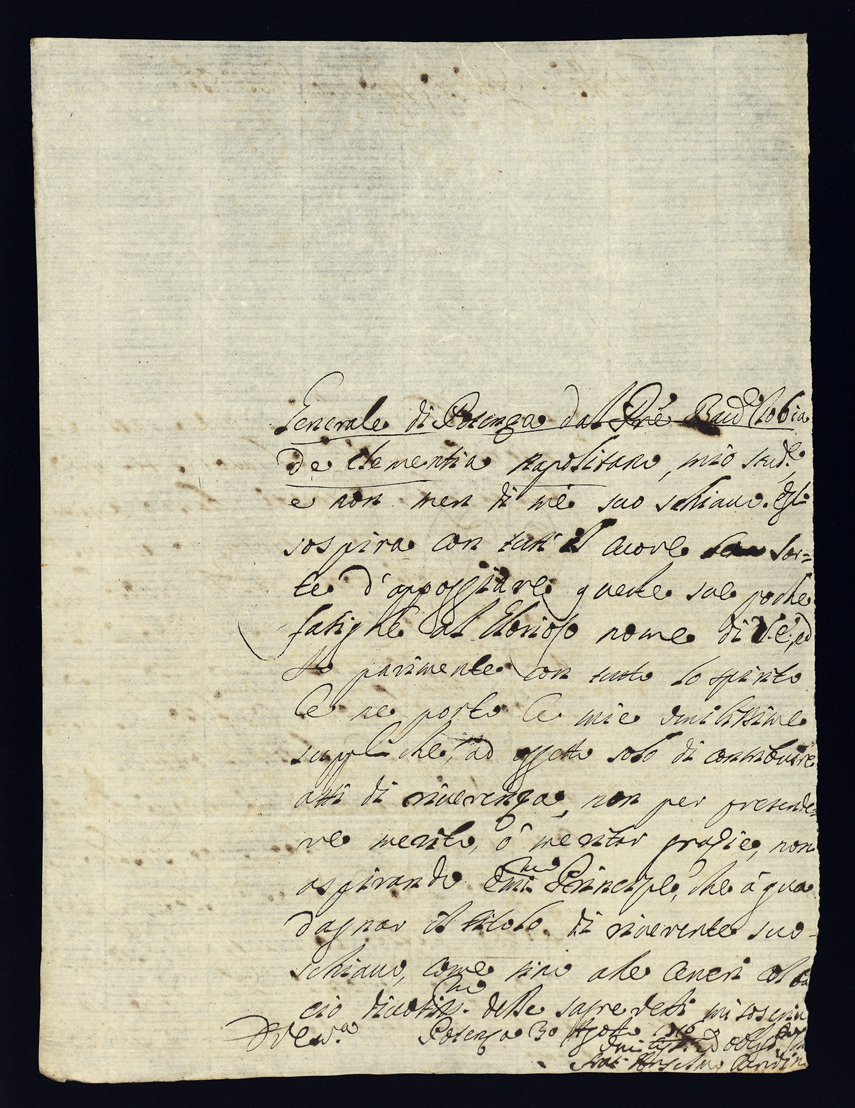 Generale di Potenza dal Pre Baud Tobia
de Clementia napolitano, mio stud.e
e non men di me suo schiavo. Egli
sospira con tutt' il cuore sor=
te d'appoggiare queste sue poche
fatighe al glorioso nome di V.E., ed
Io parimente con tutto lo spirito
le ne porto le mie umilissime
suppliche, ad oggetto solo di contribuire
atti di riverenza, non per pretende=
re merito, ò meritar grazie, non
aspirando Emi.mo Principe, che à gua
dagnar il titolo di riverente suo
schiavo, come sino alle ceneri col ba
cio divotiss.mo delle sagre vesti mi soscrivo
Di V. Em.a Potenza 30 Agosto